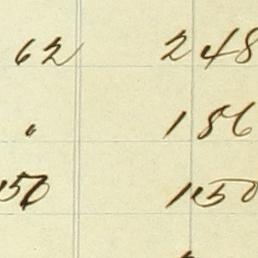 62 248
" 186
150 1150